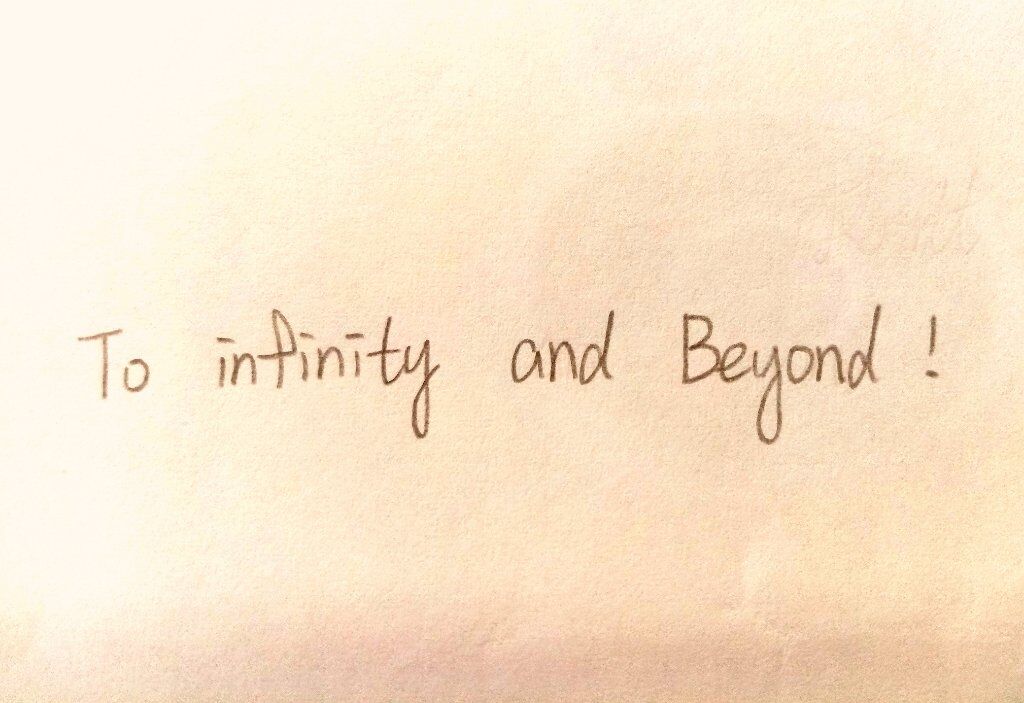 To infinity and Beyond !